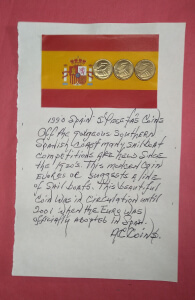 1990 SPAIN 5 PESETAS COINS
OFF THE GORGEOUS SOUTHERN
SPANISH COAST MANY SAILBOAT
COMPETITIONS ARE HELD SINCE
THE 1920s. THIS MODERN COIN
EVOKES OR SUGGESTS A LINE
OF SAIL BOATS. THIS BEAUTIFUL
COIN WAS IN CIRCULATION UNTIL
2001 WHEN THE EURO WAS
OFFICIALLY ADOPTED IN SPAIN.
COINS